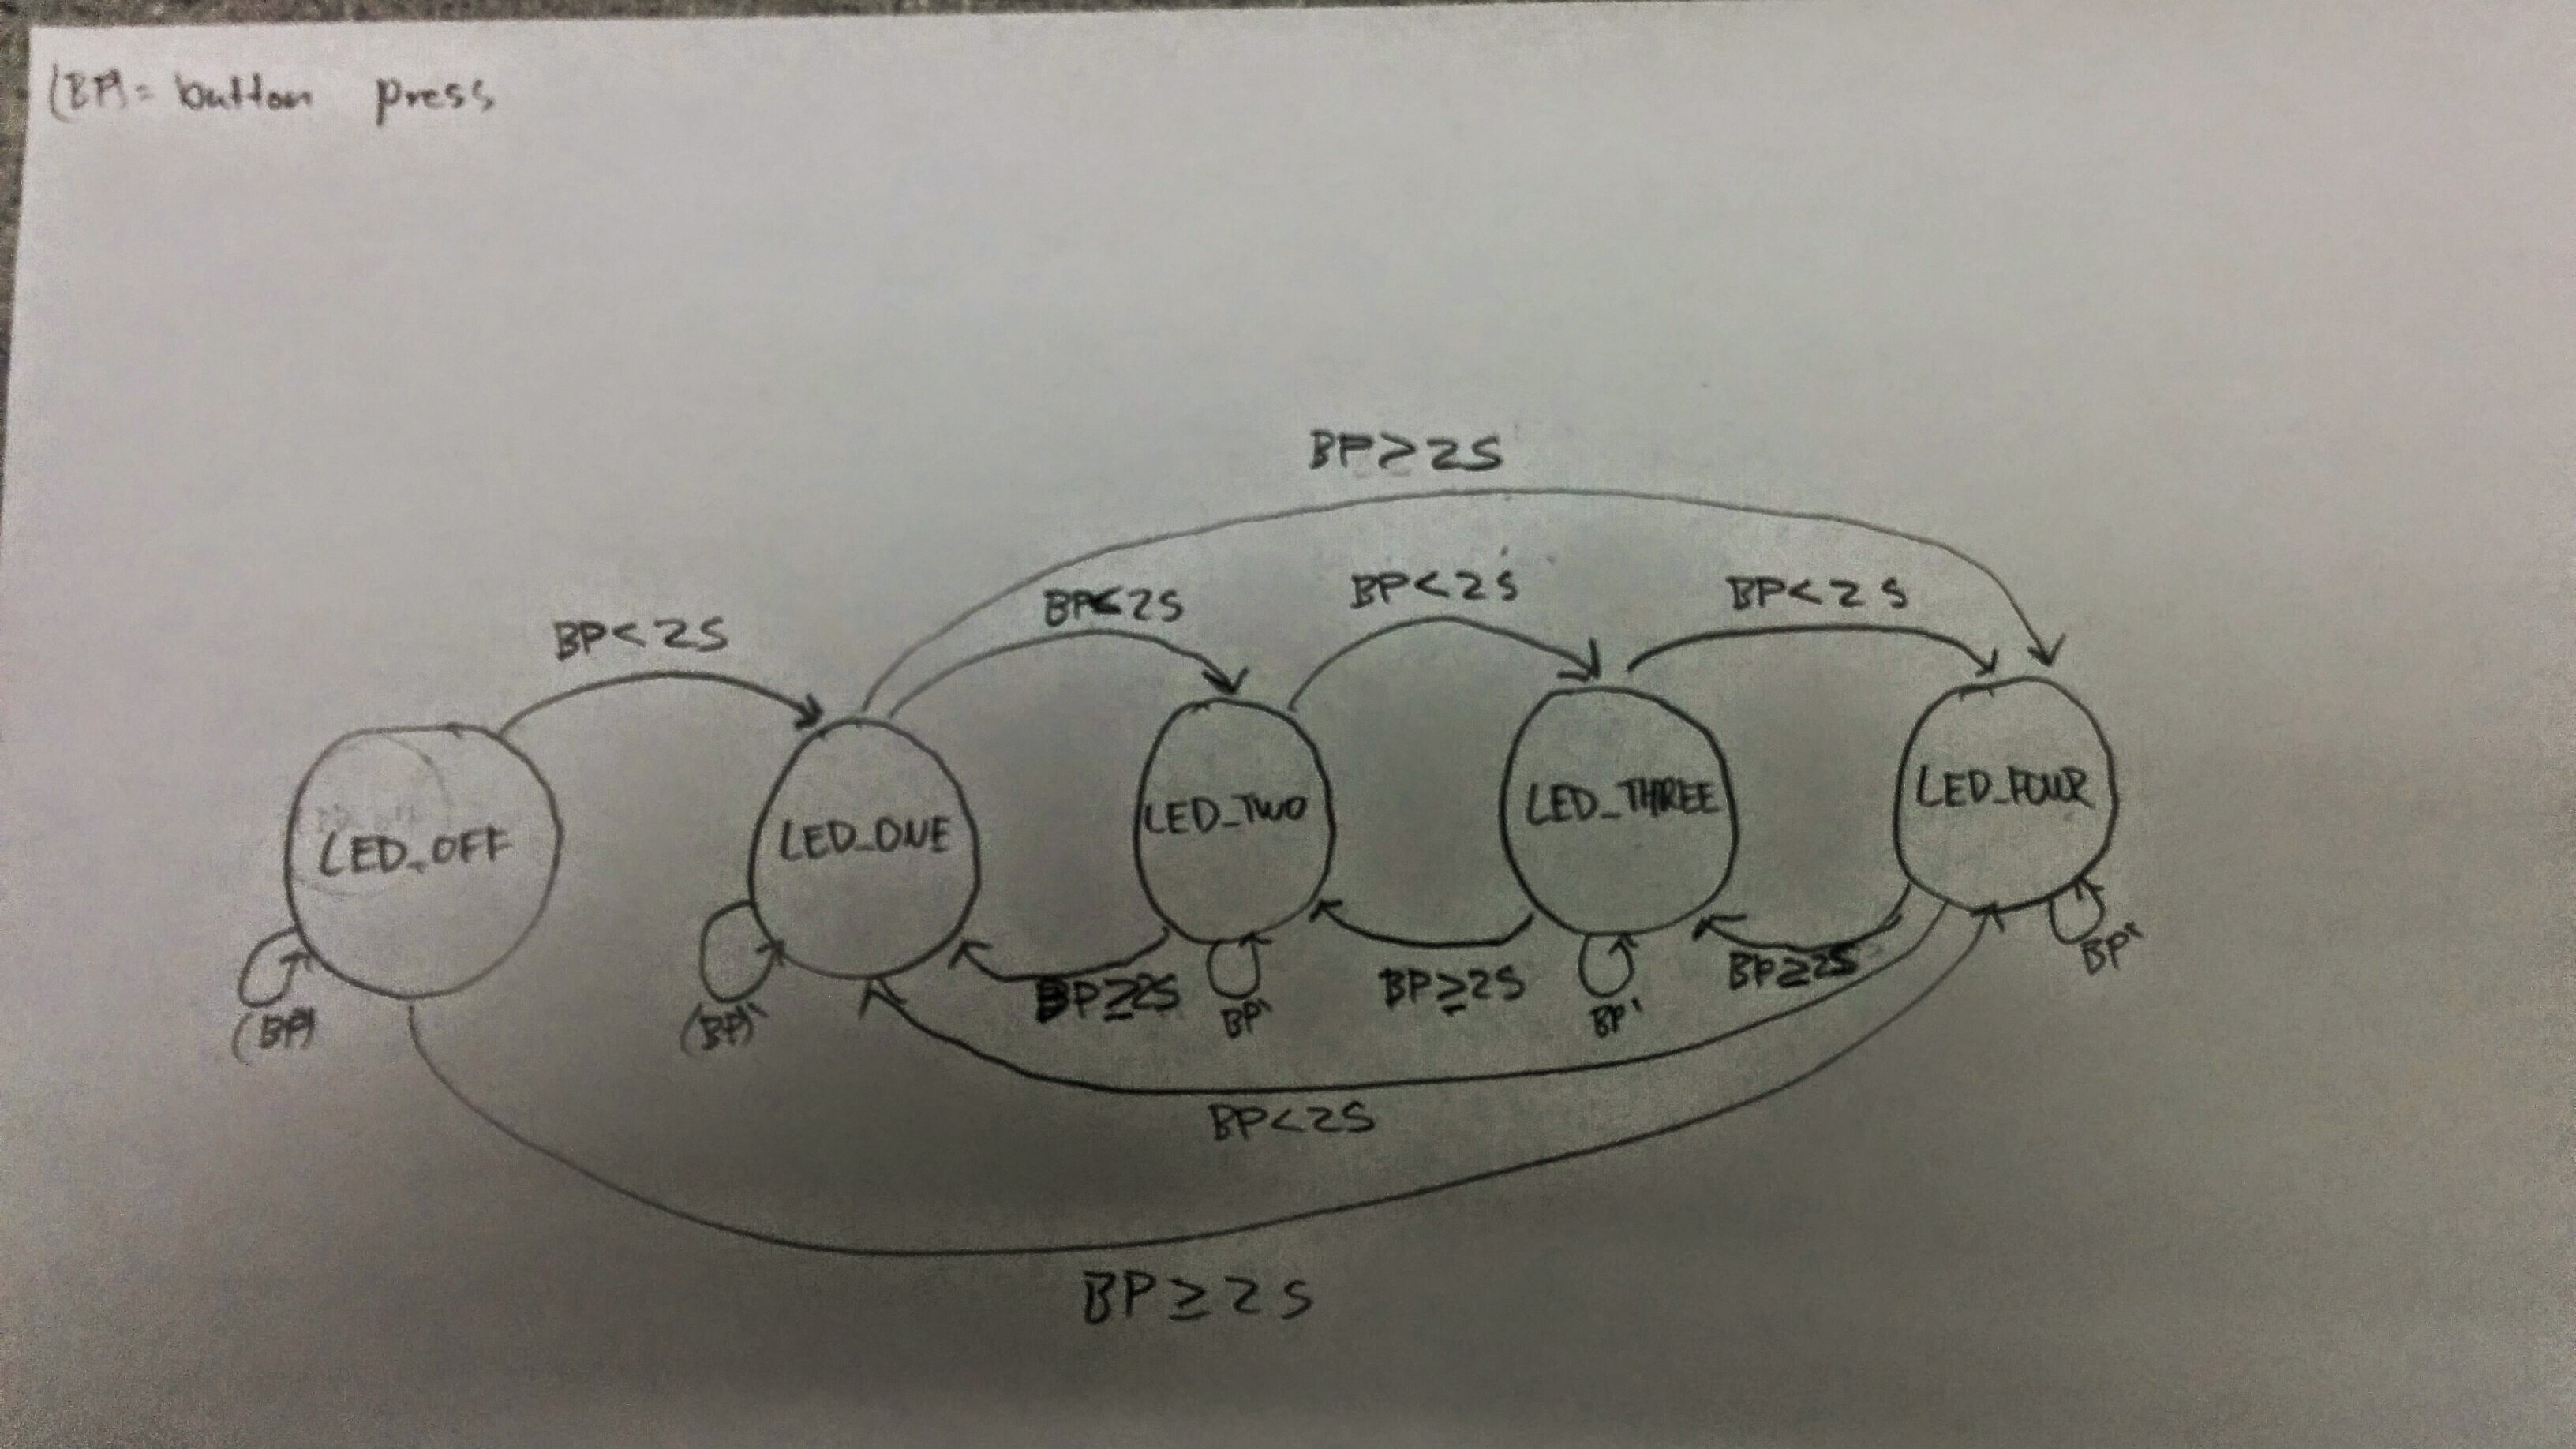 (BP) = button press
BP>2S
BP<2S
BP<2S
BP<2S
BP<2S
LED_OFF
LED_ONE
LED_TWO
LED_THREE
LED_FOUR
(BP)
(BP)'
BP≥2S
BP'
BP≥2S
BP'
BP≥2S
BP'
BP<2S
BP≥2S